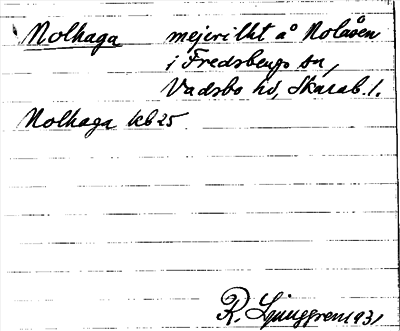 Nolhaga mejerilht å Nolåsen
i Fredsbergs sn,
Vadsbo hd, Skarab. l.
Nolhaga kb 25
R. Ljunggren 1931